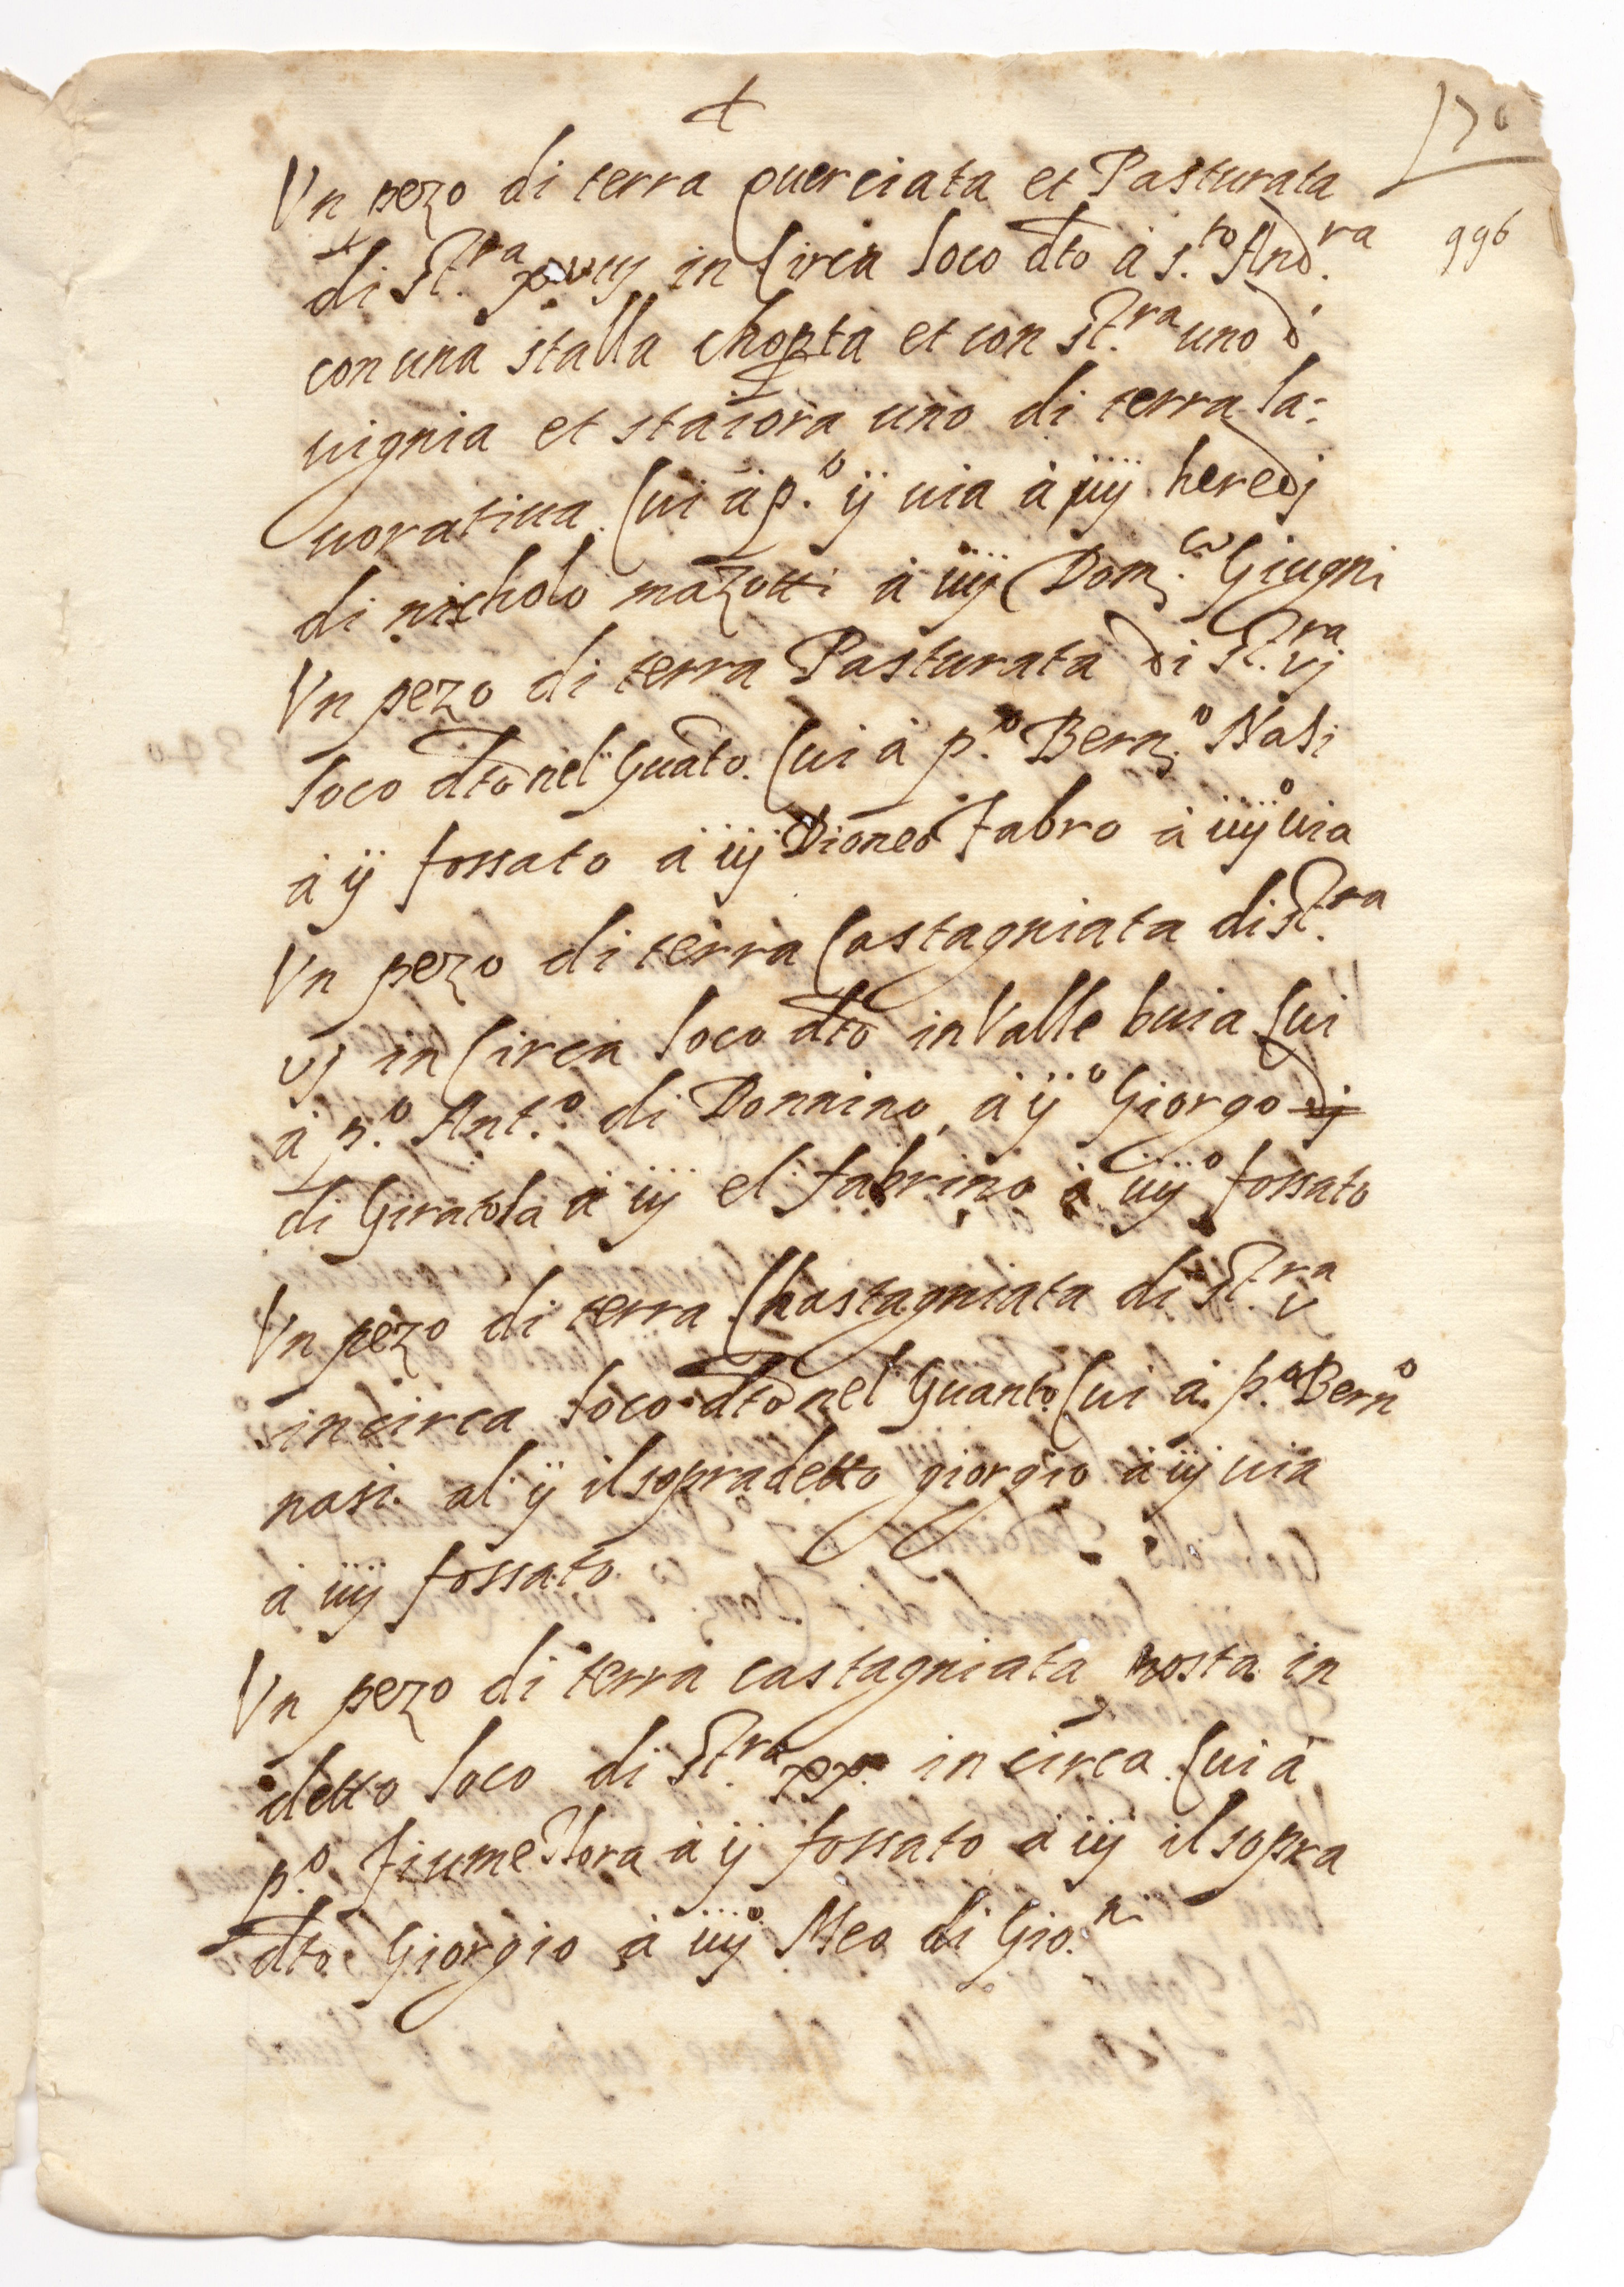 +
170
Vn pezo di terra querciata et Pasturata
996
di st.ra xviij in Circa loco dto à s.to And.ra
con una stalla choperta et con st.ra uno d
uignia et staiora uno di terra la=
uoratiua. Cui à p.o ij uia à iij heredj
di nicholo mazotti à iiij Dom.co Giugni
Vn pezo di terra Pasturata di st.ra vj
loco dto nel Guato. Cui à p.o Bern.o Nasi
à ij fossato à iij Dioneo Fabro à iiij.o uia
Vn pezo di terra Castagniata di st.ra
vj in Circa loco dto in Valle buia Cui
à p.o Ant.o di Donnino, à ij.o Giorgo dj
di Giratola à iij el fabrino à iiij.o fossato
Vn pezo di terra Chastagniata di st.ra v
in circa loco dto nel Guanto. Cui à p.o Bern.o
nasi. al ij il sopradetto giorgio à iij uia
à iiij fossato.
Vn pezo di terra castagniata posta in
detto loco di st.ra xx in circa. Cui à
p.o fiume Stora à ij fossato à iij il sopra
dto Giorgio à iiij.o Meo di Gio.n